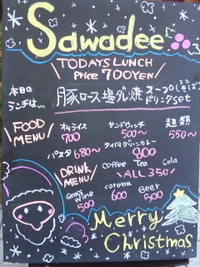 Sawadee
TODAYS LUNCH
Price 700YEN
本日の
ランチは…
豚ロース塩ダレ焼
スープ
ドリンクset
FOOD
MENU
オムライス
700
サンドウィッチ
500〜
麺類
550〜
パスタ 680〜
タイ風グリーンカレー
800
DRINK
MENU
Coffee Tea Cola
ALL 350
Grass
Wine
500
corona
600
Beer
500
Merry
Christmas